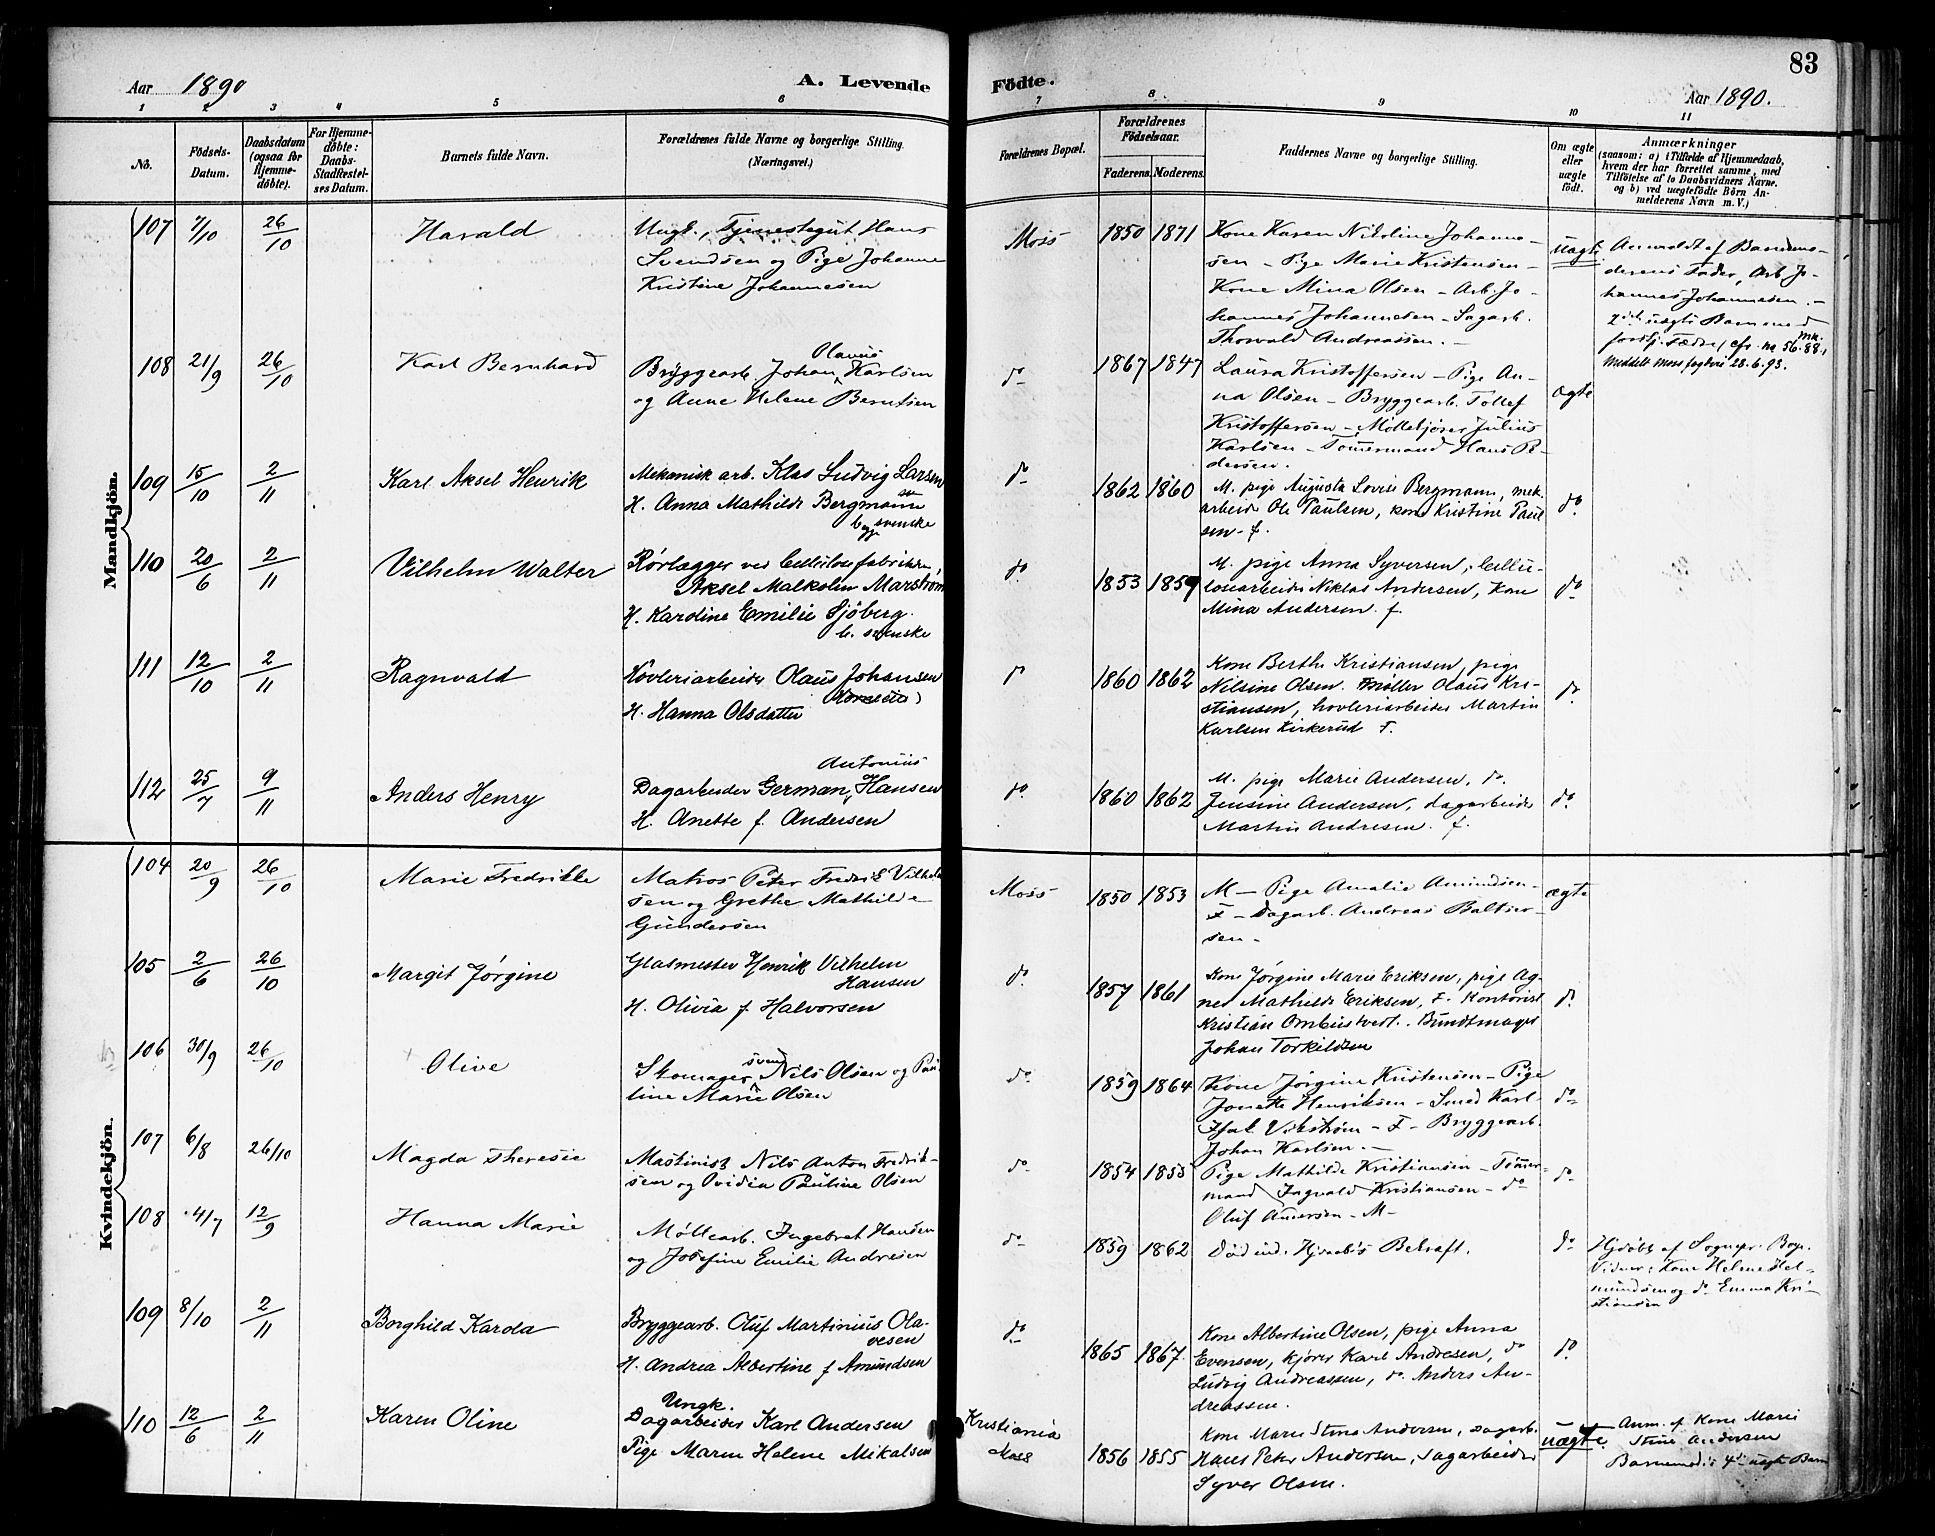 Aar 1890
A. Levende
Födte.
83
Aar 1890.
1 2 3 4 5 6 7 8 9 10 11
No.
Födsels-Datum.
Daabsdatum (ogsaa for Hjemmedöbte).
For Hjemmedøbte: Daabs-Stadfæstelses Datum.
Barnets fulde Navn.
Forældrenes fulde Navne og borgerlige Stilling.
(Næringsvei.)
Forældrenes Bopæl.
Forældrenes Födselsaar.
Faderens. Moderens.
Faddernes Navne og borgerlige Stilling.
Om ægte eller uægte födt.
Anmærkninger
(saasom: a) i Tilfælde af Hjemmedaab,
hvem der har forrettet samme, med
Tilföielse af to Daabsvidners Navne.
og b) ved uægtefödte Börn An-
melderens Navn m. V.)
Mandkjön.
107 7/10 26/10 Harald
Ungk., Tjenestegut Hans
Svendsen og Pige Johanne
Kristine Johannesen
Moss 1850 1871
Kone Karen Nikoline Johanne-
sen - Pige Marie Kristensen -
Kone Mina Olsen - Arb. Jo-
hannes Johannesen - Sagarb.
Thorvald Andreassen. -
uægte
Anmeldt af Barnemo-
derens Fader, Arb. Jo-
hannes Johannesen. -
2det uægte Barn med
forskj. Fædre, cfr. no 56. 88. mk.
Meddelt Moss fogderi 28.6.93.
108 21/9 26/10 Karl Bernhard
Bryggearb. Johan Olavus Karlsen
og Anne Helene Berntsen
do 1867 1847
Laura Kristoffersen - Pige An-
na Olsen - Bryggearb. Tollef
Kristoffersen - Møllekjører Julius
Karlsen - Tømmermand Hans Pe-
dersen.
ægte
109 15/10 2/11 Karl Aksel Henrik
Mekanisk arb. Klas Ludvig Larsen
H. Anna Mathilde Bergmann
begge svenske
do 1862 1860
M. pige Augusta Lovise Bergmann, mek.
arbeider Ole Paulsen, kone Kristine Paul
sen - f.
do
110 20/6 2/11 Vilhelm Walter
Rørlægger ved Cellulosefabriken,
Aksel Malkolm Marstrøm
H. Karolina Emilie Sjöberg.
b. svenske
do 1853 1859
M. pige Anna Syversen, Cellu-
losearbeider Niklas Andersen, Kone
Mina Andersen. f.
do
111 12/10 2/11 Ragnvald
Høvleriarbeider Olaus Johansen
H. Hanna Olsdatter
do 1860 1862
Kone Berthe Kristiansen, pige
Nilsine Olsen. Møller Olaus Kri-
stiansen, høvleriarbeider Martin
Karlsen Kirkerud F.
do.
112 25/7 9/11 Anders Henry
Dagarbeider German Antonius Hansen
H. Anette f. Andersen
do 1860 1862
M. pige Marie Andersen, do.
Jensine Andersen, dagarbeider
Martin Andresen. f.
do
Kvindekjön.
104 20/9 26/10 Marie Fredrikke
Matros Peter Fredrik Vilhelm
sen og Grethe Mathilde
Gundersen
Moss 1850 1853
M - Pige Amalie Amundsen -
F - Dagarb. Andreas Baltser-
sen -
ægte
105 2/6 26/10 Margit Jørgine
Glasmester Henrik Vilhelm
Hansen
H. Olivia f. Halvorsen
do. 1857 1861
Kone Jørgine Marie Eriksen, pige Ag-
nes Mathilde Eriksen, F. Kontorist
Kristian Ombustvedt. Bundtmager
Johan Torkildsen
do.
106 30/9 26/10 Olive
Skomagersvend Nils Olsen og Pau-
line Marie Olsen
do 1859 1864
Kone Jørgine Kristensen - Pige
Jonette Henriksen - Smed Karl
Isak Vikstrøm - F - Bryggearb.
Johan Karlsen. -
do
107 6/8 26/10 Magda Theresie
Maskinist Nils Anton Fredrik-
sen og Ovidia Pauline Olsen
do 1854 1855
Pige Mathilde Kristiansen - Tømmer-
mand Ingvald Kristiansen - do
Oluf Andersen - M -
do
108 4/7 12/9 Hanna Marie
Møllearb. Ingebret Hansen
og Josefine Emilie Andresen
do 1859 1862
Død ind. Hjdaabs Bekræft.
do
Hjdøbt af Sognepr. Boye.
Vidner: Kone Helene Hel-
mundsen og do Emma Kri-
stiansen
109 8/10 2/11 Borghild Karola
Bryggearb. Oluf Martinius Ola-
vesen
H. Andrea Albertine f Amundsen
do 1865 1867.
Kone Albertine Olsen, pige Anna
Evensen, kjører Karl Andresen, do
Ludvig Andreassen, do. Anders An-
dreassen.
do
110 12/6 2/11 Karen Oline
Ungk.
Dagarbeider Karl Andersen
Pige Maren Helene Mikalsen
Kristiania
Moss
1856 1855
Kone Marie Stina Andersen, dagarb.
Hans Peter Andersen, dagarbeider
Syver Olsen.
uægte.
Anm. af Kone Marie
Stine Andersen
Barnemod's 4de uægte Barn